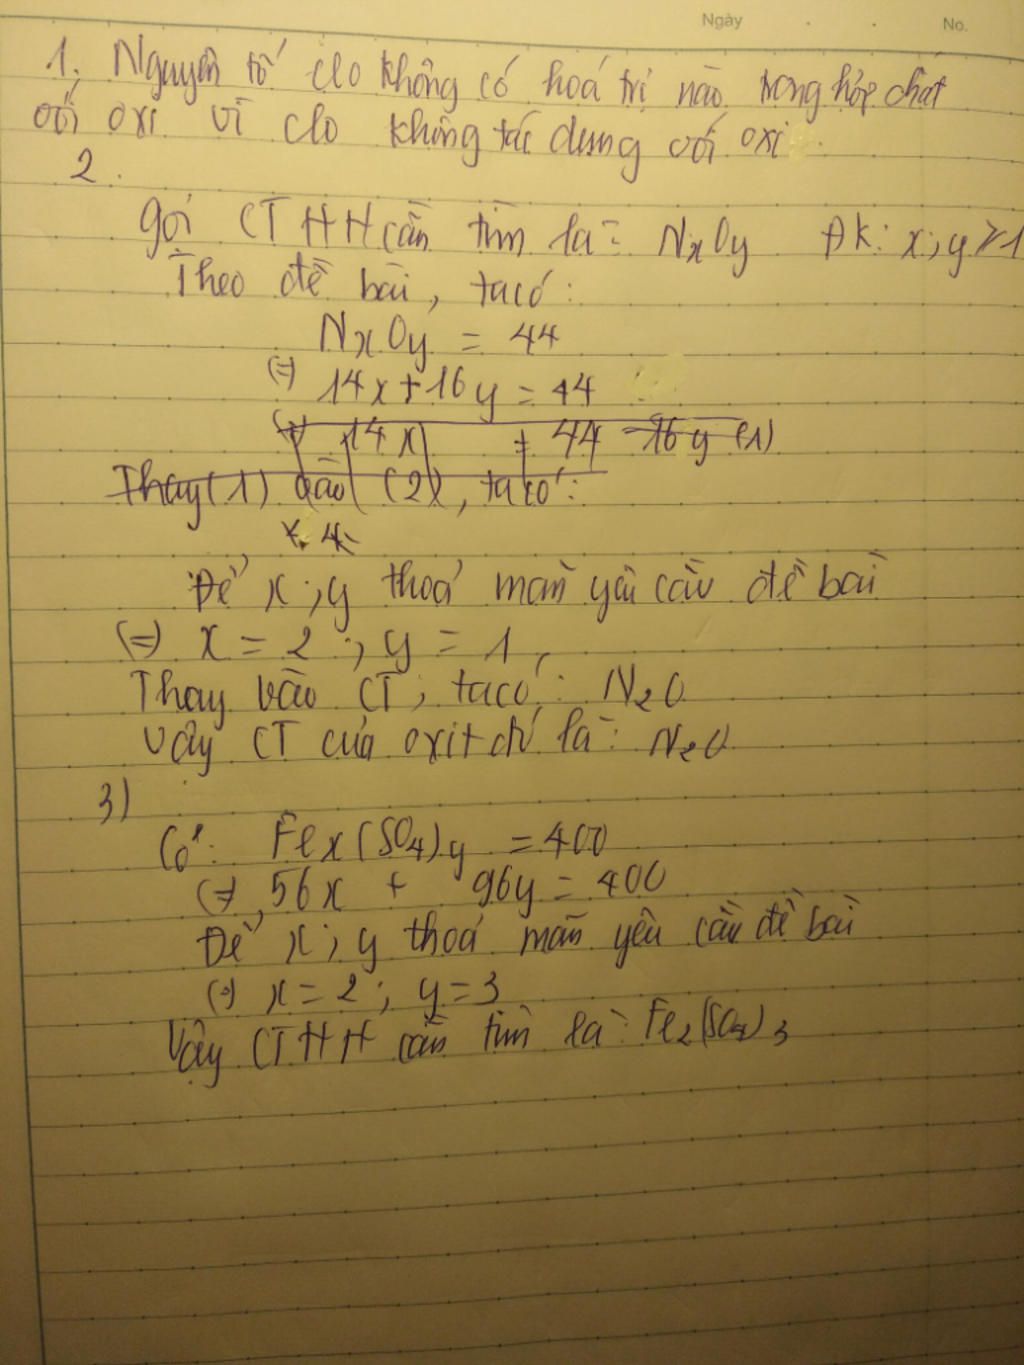 Ngày
No.
1. Nguyên tố clo không có hoá trị nào trong hợp chất
với oxi vì clo không tác dụng với oxi.
2.
gọi CTHH cần tìm là: NxOy ĐK: x; y ≥ 1
Theo đề bài, ta có:
NxOy = 44
(=) 14x + 16y = 44
(=) 14x = 44 - 16y (1)
Thay (1) vào (2), ta có:
Để x; y thoả mãn yêu cầu đề bài
(=) x = 2; y = 1,
Thay vào CT, ta có: N2O
Vậy CT của oxit đó là: N2O
3)
Có: Fex(SO4)y = 400
(=) 56x + 96y = 400
Để x; y thoả mãn yêu cầu đề bài
(=) x = 2; y = 3
Vậy CTHH cần tìm là: Fe2(SO4)3